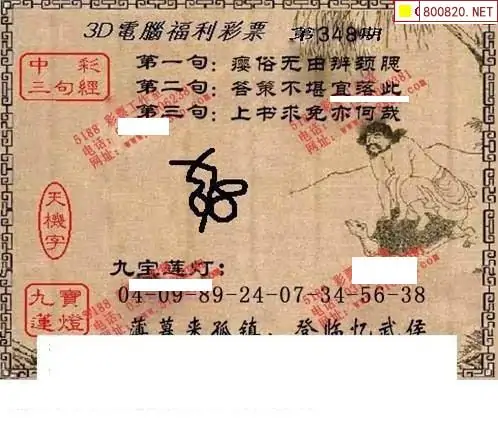 800820.NET
3D電腦福利彩票 第348期
中彩
三句經
第一句：瘿俗无由辨颈腮
第二句：答策不堪宜落此
第三句：上书求免亦何哉
天機字
九宝莲灯：
九寶
蓮燈
04-09-89-24-07-34-56-38
薄暮来孤镇，登临忆武侯